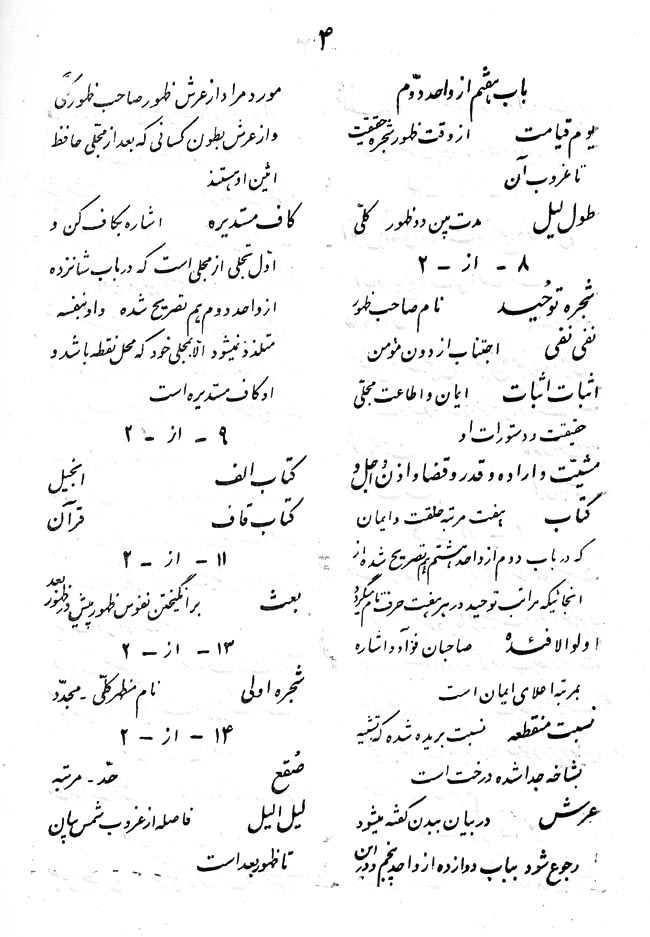 ۴
باب هفتم از واحد دوّم
یوم قیامت از وقت ظهور شجره حقیقت
تا غروب آن
طول لیل مدت بین دو ظهور کلّی
۸ - از - ۲
شجره توحید نام صاحب ظهور
نفی نفی اجتناب از دون مؤمن
اثبات اثبات ایمان و اطاعت مجلّی
حقیقت و دستورات او
مشیّت و اراده و قدر و قضا و اذن و اجل و
کتاب هفت مرتبه خلقت و ایمان
که در باب دوم از واحد هشتم هم تصریح شده از
آنجائیکه مراتب توحید در هر هفت حرف تام میگردد
اولو الافئده صاحبان فؤاد و اشاره
بمرتبه اعلای ایمان است
نسبت منقطعه نسبت بریده شده که تشبیه
بشاخه جدا شده درخت است
عرش در بیان ببدن گفته میشود
رجوع شود بباب دوازده از واحد پنجم در این
مورد مراد از عرش ظهور صاحب ظهوری
و از عرش بطون کسانی که بعد از مجلّی حافظ
آئین او هستند
کاف مستدیره اشاره بکاف کن و
اوّل تجلّی از مجلی است که در باب شانزده
از واحد دوم هم تصریح شده و ادنفسه
متلذذ نمیشود الّا بمجلی خود که محل نقطه باشد و
او کاف مستدیره است
۹ - از - ۲
کتاب الف انجیل
کتاب قاف قرآن
۱۱ - از - ۲
بعث برانگیختن نفوس ظهور پیش در ظهور بعد
۱۳ - از - ۲
شجره اولی نام مظهر کلّی - مجدّد
۱۴ - از - ۲
صُقع حدّ - مرتبه
لیل الیل فاصله از غروب شمس بیان
تا ظهور بعد است